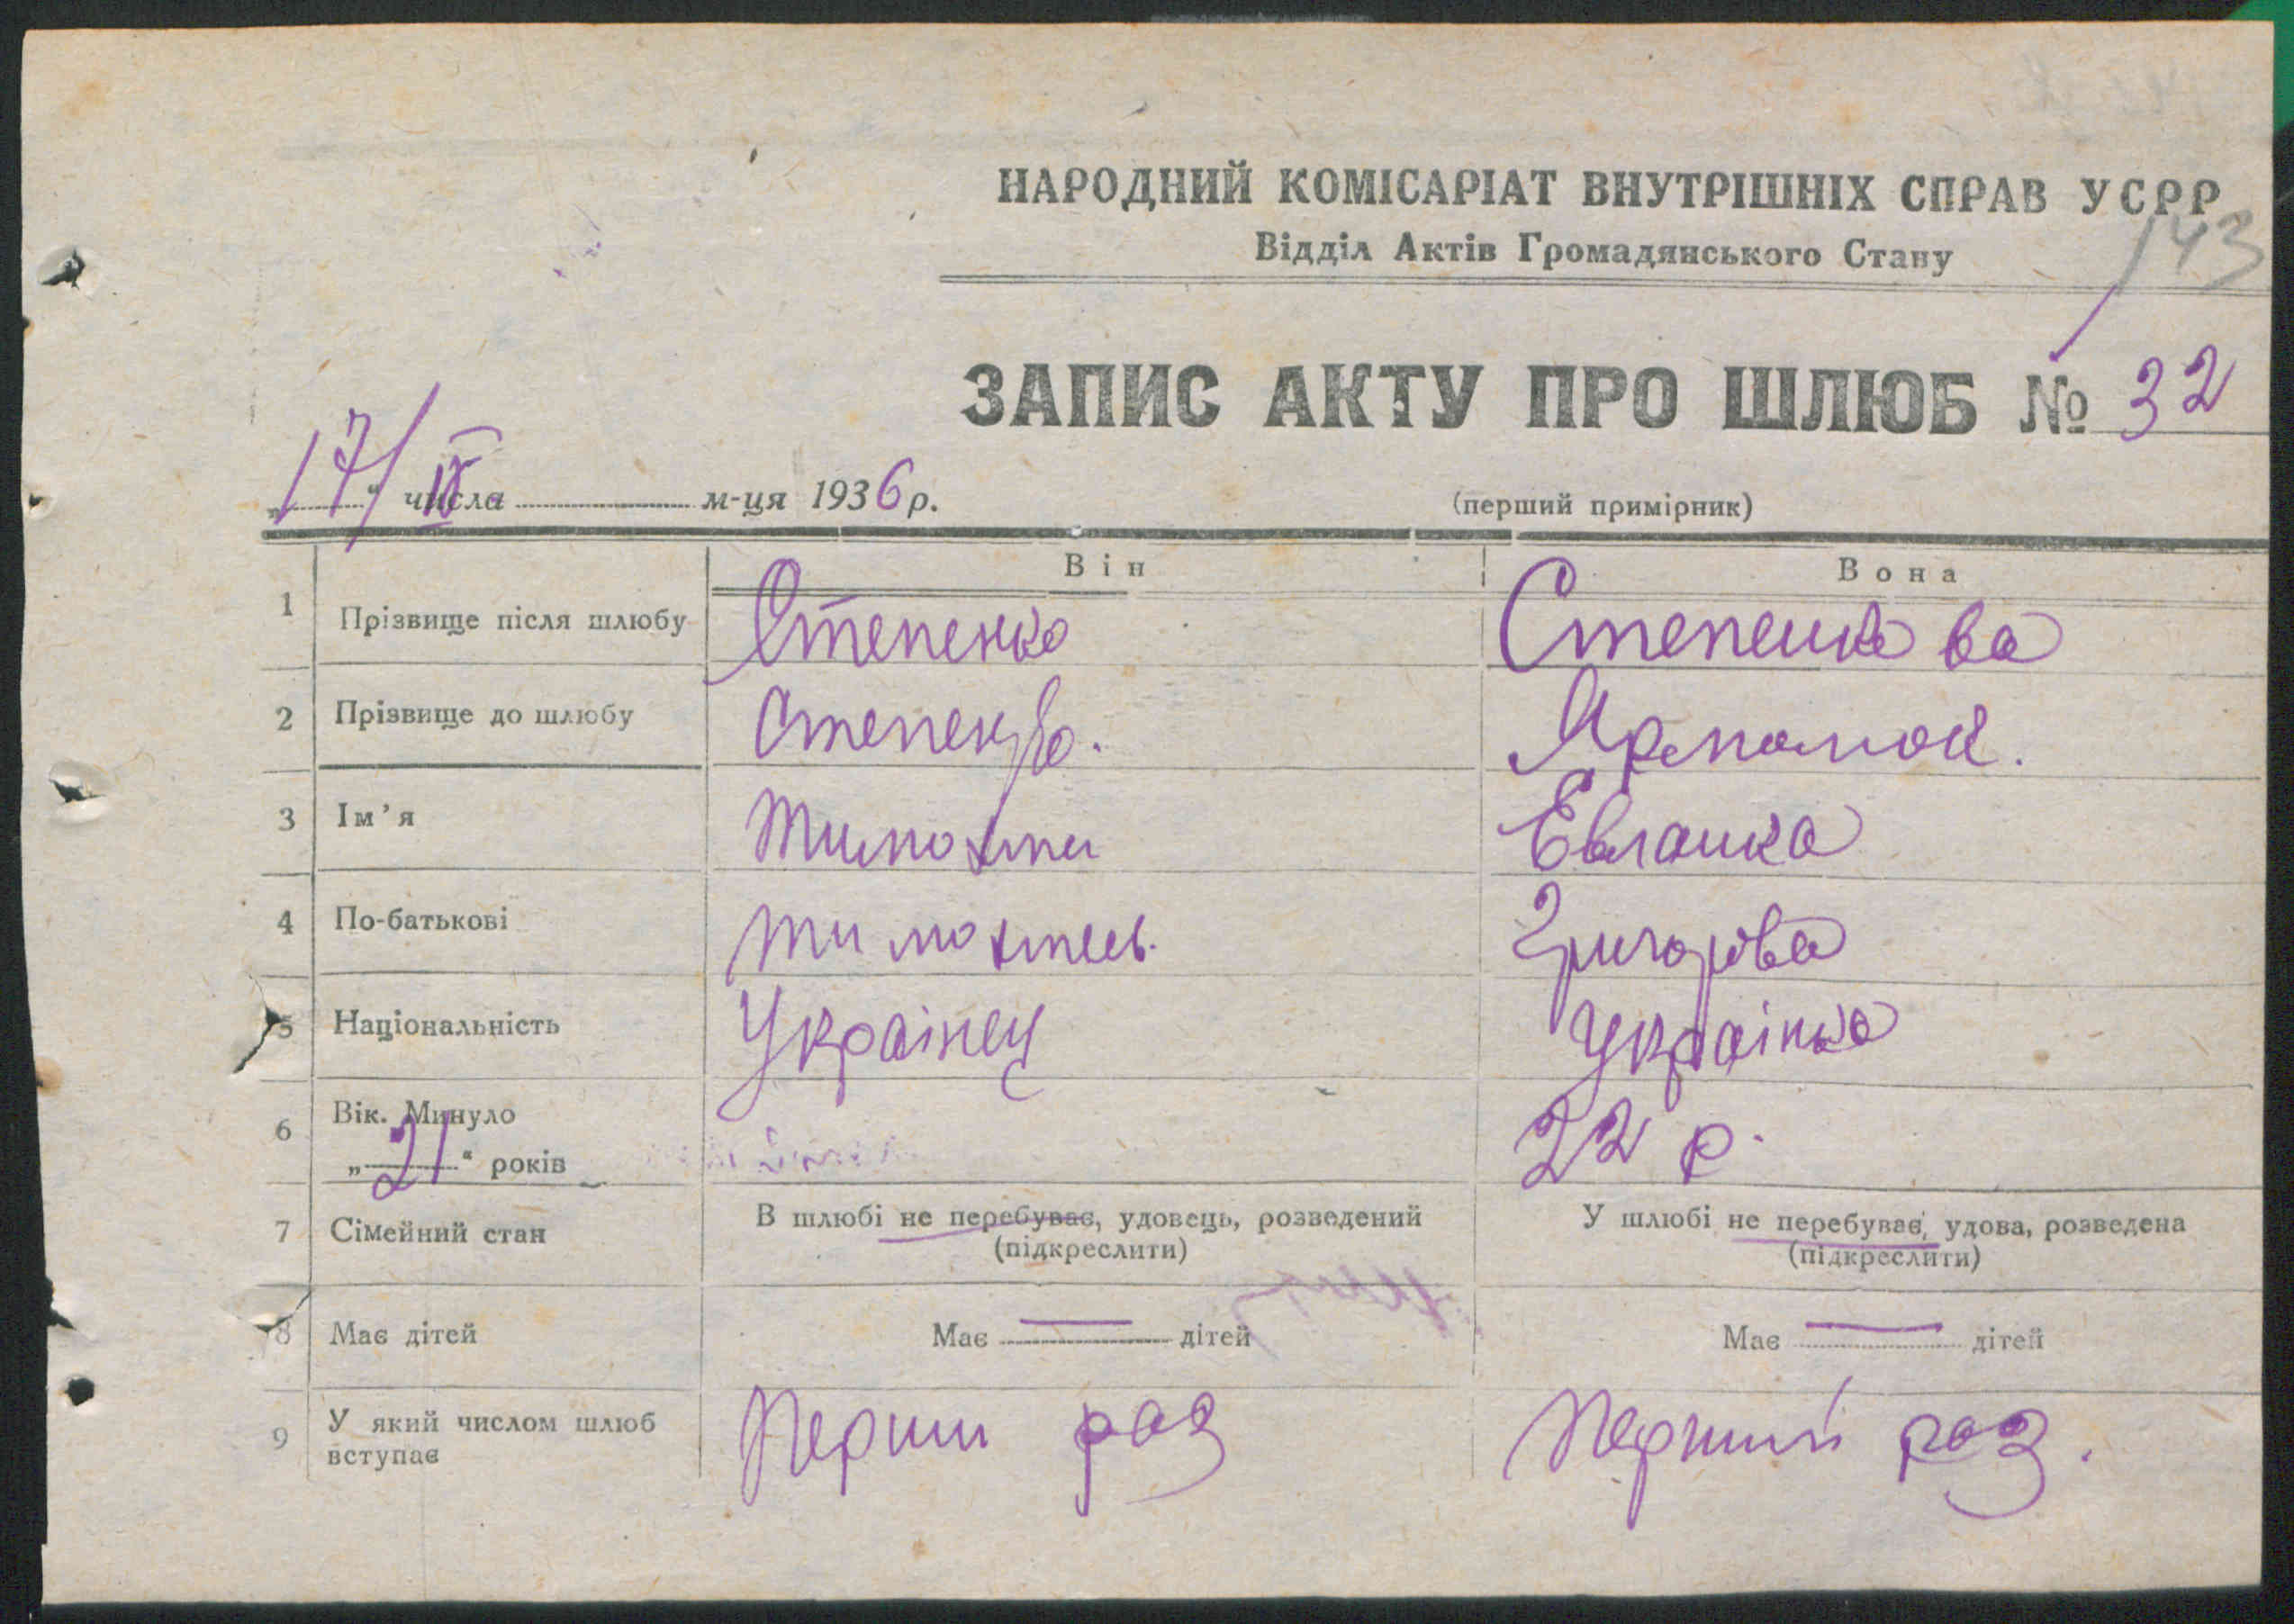 НАРОДНИЙ КОМІСАРІАТ ВНУТРІШНІХ СПРАВ УСРР
Відділ Актів Громадянського Стану
143
ЗАПИС АКТУ ПРО ШЛЮБ № 32
„17/“ числа IV м-ця 1936 р.
(перший примірник)
Він Вона
1 Прізвище після шлюбу Степенко Степенкова
2 Прізвище до шлюбу Степенко.
3 Ім'я
4 По-батькові Григорова
5 Національність Українец Українка
6 Вік. Минуло 22 р.
„21“ років
7 Сімейний стан В шлюбі не перебуває, удовець, розведений У шлюбі не перебуває, удова, розведена
(підкреслити) (підкреслити)
8 Має дітей Має — дітей Має — дітей
9 У який числом шлюб вступає Перши раз Перший раз.